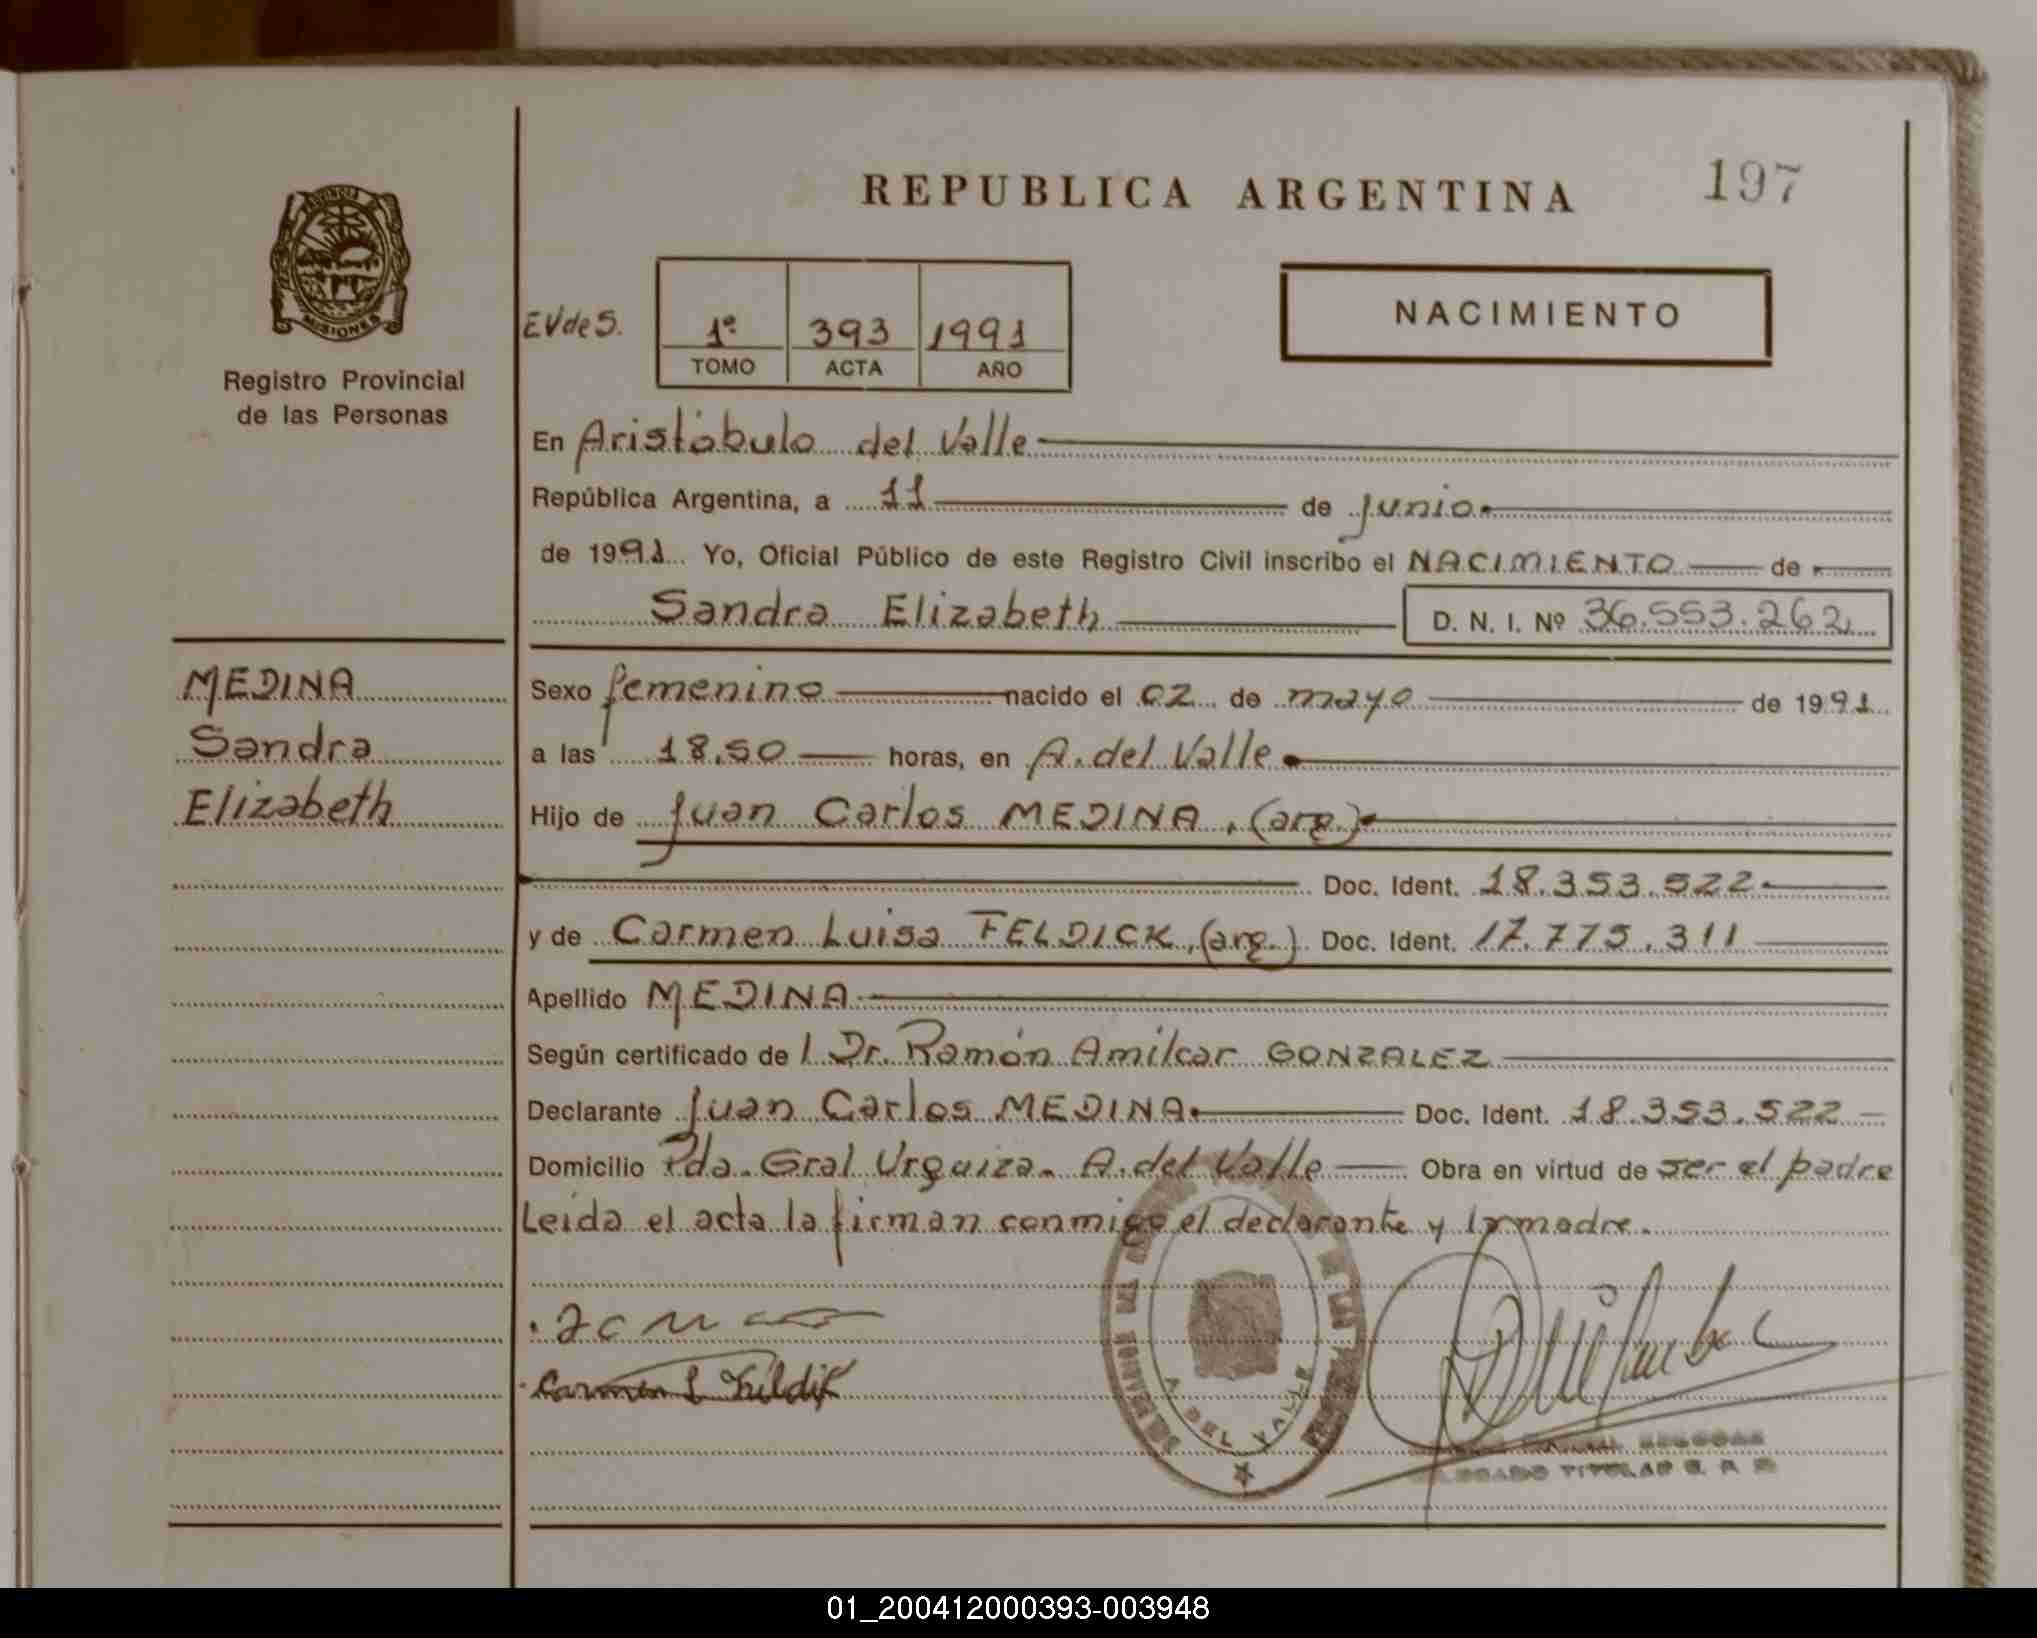 REPUBLICA ARGENTINA
197
PROVINCIA
MISIONES
Registro Provincial
de las Personas
EVdeS.
1º 393 1991
TOMO ACTA AÑO
NACIMIENTO
En Aristóbulo del Valle
República Argentina, a 11 de junio
de 1991 Yo, Oficial Público de este Registro Civil inscribo el NACIMIENTO de
Sandra Elizabeth D. N. I. Nº 36.553.262
MEDINA
Sandra
Elizabeth
Sexo femenino nacido el 02 de mayo de 1991
a las 18.50 horas, en A. del Valle
Hijo de Juan Carlos MEDINA, (arg.)
Doc. Ident. 18.353.522
y de Carmen Luisa FELDICK, (arg.) Doc. Ident. 17.775.311
Apellido MEDINA
Según certificado de l Dr. Ramón Amilcar GONZALEZ
Declarante Juan Carlos MEDINA Doc. Ident. 18.353.522
Domicilio Pda. Gral Urquiza. A. del Valle Obra en virtud de ser el padre
Leida el acta la firman conmigo el declarante y la madre.
Carmen L Feldik
A. DEL VALLE
TITULAR
01_200412000393-003948